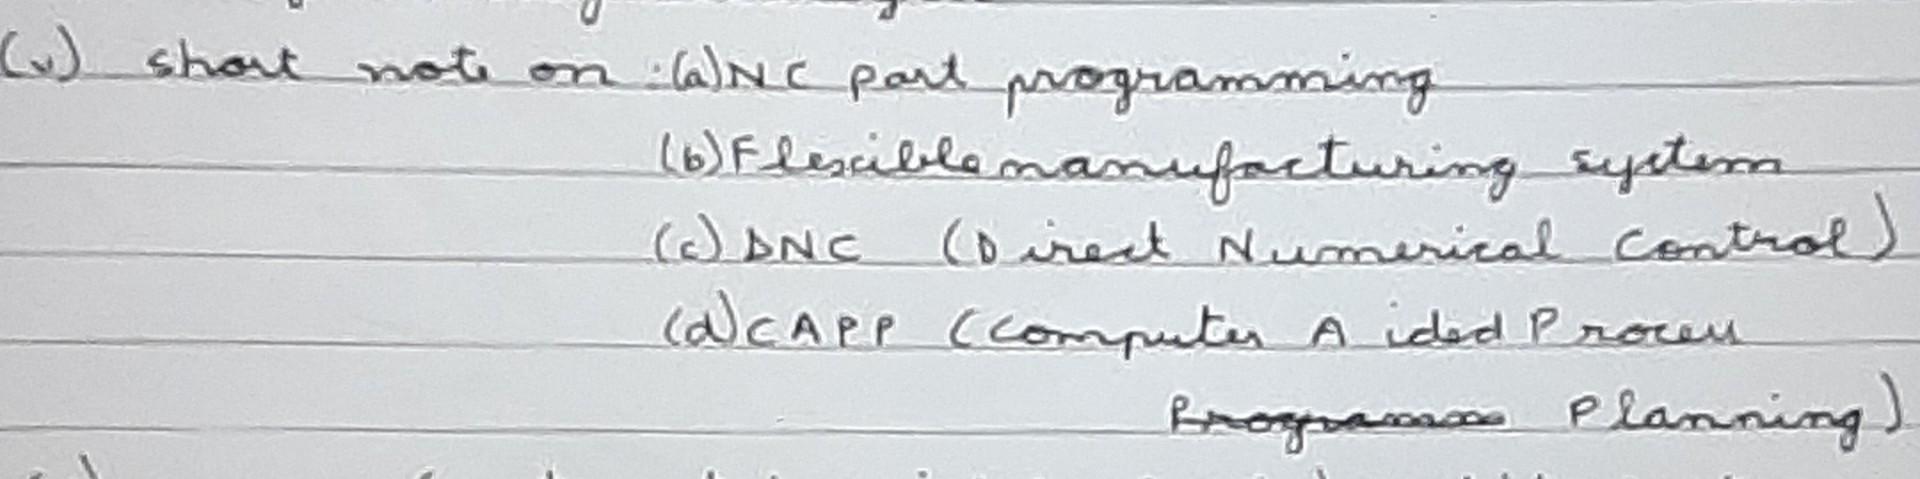 (v) short note on :(a) NC part programming
(b) Flexible manufacturing system
(c) DNC (Direct Numerical Control)
(d) CAPP (Computer Aided Process
Planning)